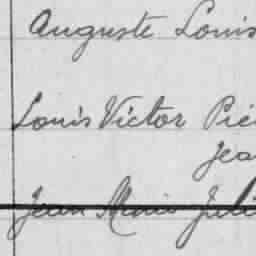 Auguste Louis
Louis Victor Pié
Jea
Jean Juli